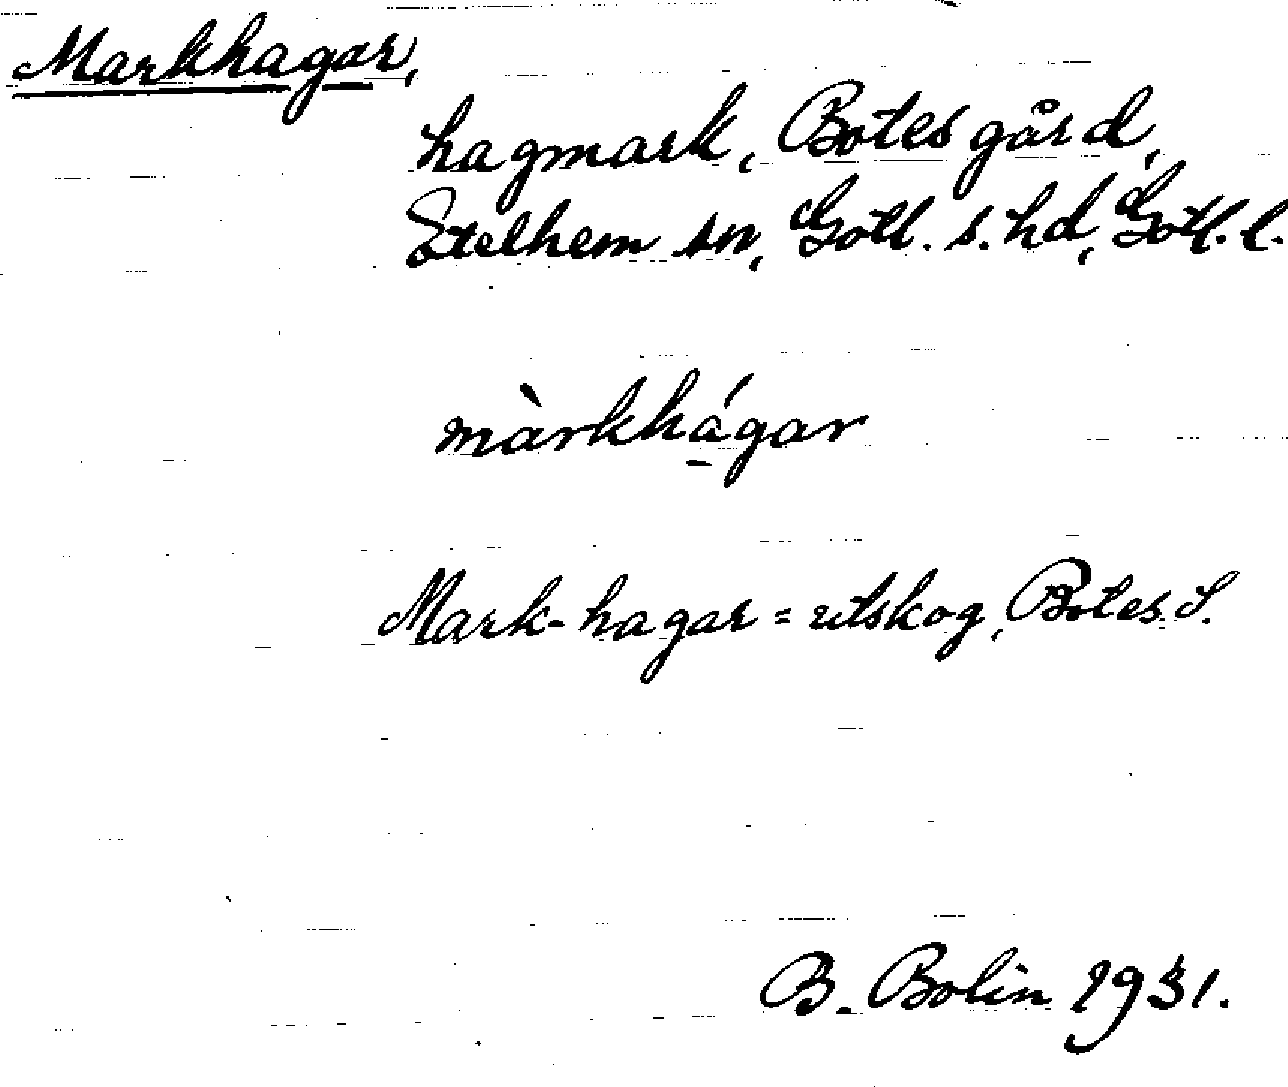 Markhagar,
hagmark, Botes gård,
Etelhem sn, Gotl. s. hd, Gotl. l.
màrkhá̱gar
Mark-hagar = utskog, Botes S.
B. Bolin 1931.